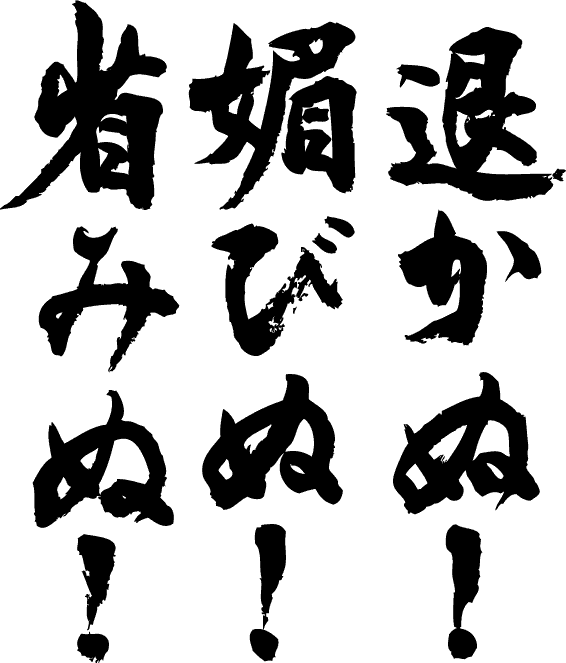 退かぬ!
媚びぬ!
省みぬ!